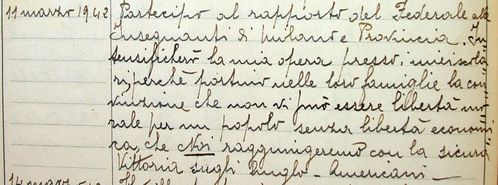 11 marzo 1942 Partecipo al rapporto del Federale alle
Insegnanti di Milano e Provincia. In
tensificherò la mia opera presso i miei scola
ri perchè portino nelle loro famiglie la con
vinzione che non vi può essere libertà mo
rale per un popolo senza libertà economi
ca, che Noi raggiungeremo con la sicura
Vittoria sugli Anglo-Americani
14 marzo